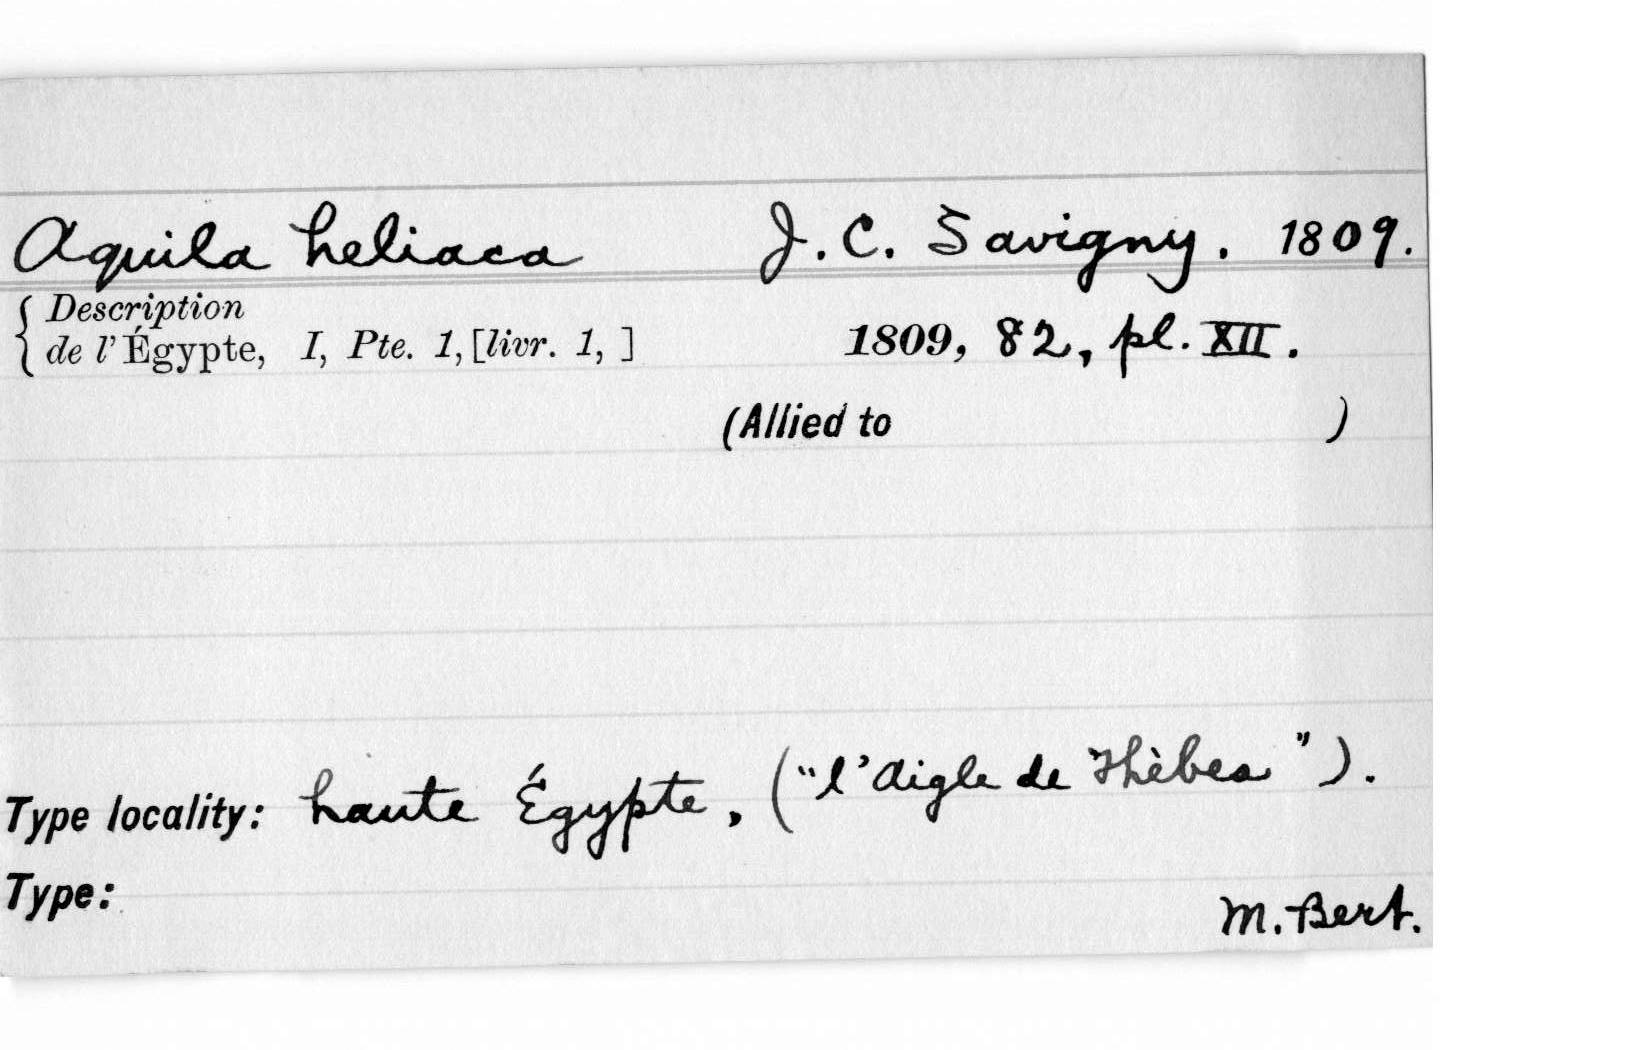 Aquila heliaca J. C. Savigny. 1809.
Description
de l'Égypte, I, Pte. 1, [livr. 1, ] 1809, 82, pl. XII.
(Allied to )
Type locality: haute Égypte, ("l'Aigle de Thèbes").
Type:
M. Bert.